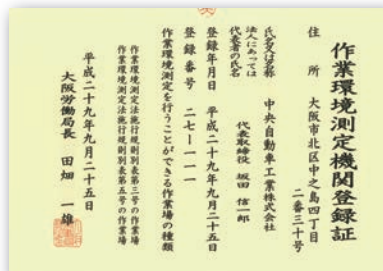 作業環境測定機関登録証
住所 大阪市北区中之島四丁目
二番三十号
氏名又は名称 中央自動車工業株式会社
法人にあっては
代表者の氏名 代表取締役 坂田 信一郎
登録年月日 平成二十九年九月二十五日
登録番号 二七ー一一一
作業環境測定を行うことができる作業場の種類
作業環境測定法施行規則別表第三号の作業場
作業環境測定法施行規則別表第五号の作業場
平成二十九年九月二十五日
大阪労働局長 田畑 一雄